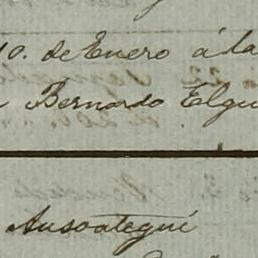 10. de Enero á la
Bernardo Elgu
Ansoategui